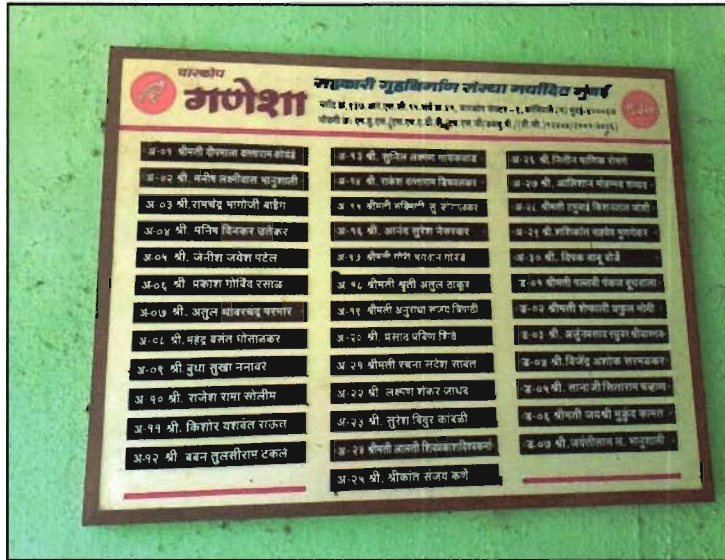 चारकोप
गणेशा
सहकारी गृहनिर्माण संस्था मर्यादित मुंबई
अ-०१ श्रीमती दीपमाला दत्ताराम
अ-०२ श्री. मनीष लक्ष्मीदास भानुशाली
अ-०३ श्री. रामचंद्र भागोजी बाईंग
अ-०४ श्री. मनिष दिनकर उतेकर
अ-०५ श्री. जेनीश जयेश पटेल
अ-०६ श्री. प्रकाश गोविंद रसाळ
अ-०७ श्री. अतुल थावरचंद्र परमार
अ-०८ श्री. महेंद्र बसंत घोसाळकर
अ-०९ श्री. बुधा सुखा ननावरे
अ-१० श्री. राजेश रामा सोलीम
अ-११ श्री. किशोर यशवंत राऊत
अ-१२ श्री बबन तुलसीराम टकले
अ-१३ श्री. सुनिल लक्ष्मण गायकवाड
अ-१४ श्री. राकेश दत्ताराम डिचवलकर
अ-१५ श्रीमती रुक्मिणी सु
अ-१६ श्री. आनंद सुरेश नेरुरकर
अ-१७ श्रीमती भगवान
अ-१८ श्रीमती श्रृती अतुल ठाकूर
अ-१९ श्रीमती अनुराधा त्रिपाठी
अ-२० श्री. प्रसाद प्रविण शिंदे
अ-२१ श्रीमती रचना सतेश सावंत
अ-२२ श्री लक्ष्मण शंकर जाधव
अ-२३ श्री. सुरेश विठुर कांबळी
अ-२४ श्रीमती लालती शिवप्रकाश विश्वकर्मा
अ-२५ श्री. श्रीकांत संजय कर्णे
अ-२६ श्री. नितीन
अ-२७ श्री. आलिशान मोहम्मद सय्यद
अ-२८ श्रीमती किशनलाल जोशी
अ-२९ श्री. शशिकांत सहदेव गुणगेकर
अ-३० श्री. दिपक बाबू बोर्जे
ड-०१ श्रीमती पल्लवी पंकज दूधवाला
ड-०२ श्रीमती शेफाली प्रफुल मोदी
ड-०३ श्री. अर्जुनप्रसाद रघुवर श्रीवास्तव
ड-०४ श्री. विजेंद्र अशोक सरमळकर
ड-०५ श्री. तानाजी सिताराम चव्हाण
ड-०६ श्रीमती जयश्री मुकुंद कामत
ड-०७ श्री. जयंतीलाल म. भानुशाली